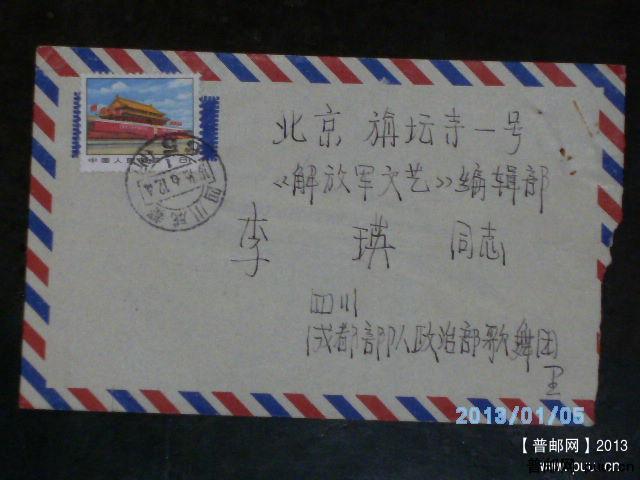 北京 旃坛寺一号
《解放军文艺》编辑部
李 瑛 同志
四川
成都部队政治部歌舞团
中国人民邮政
四川成都
2013/01/05
【普邮网】2013
www.puc.cn